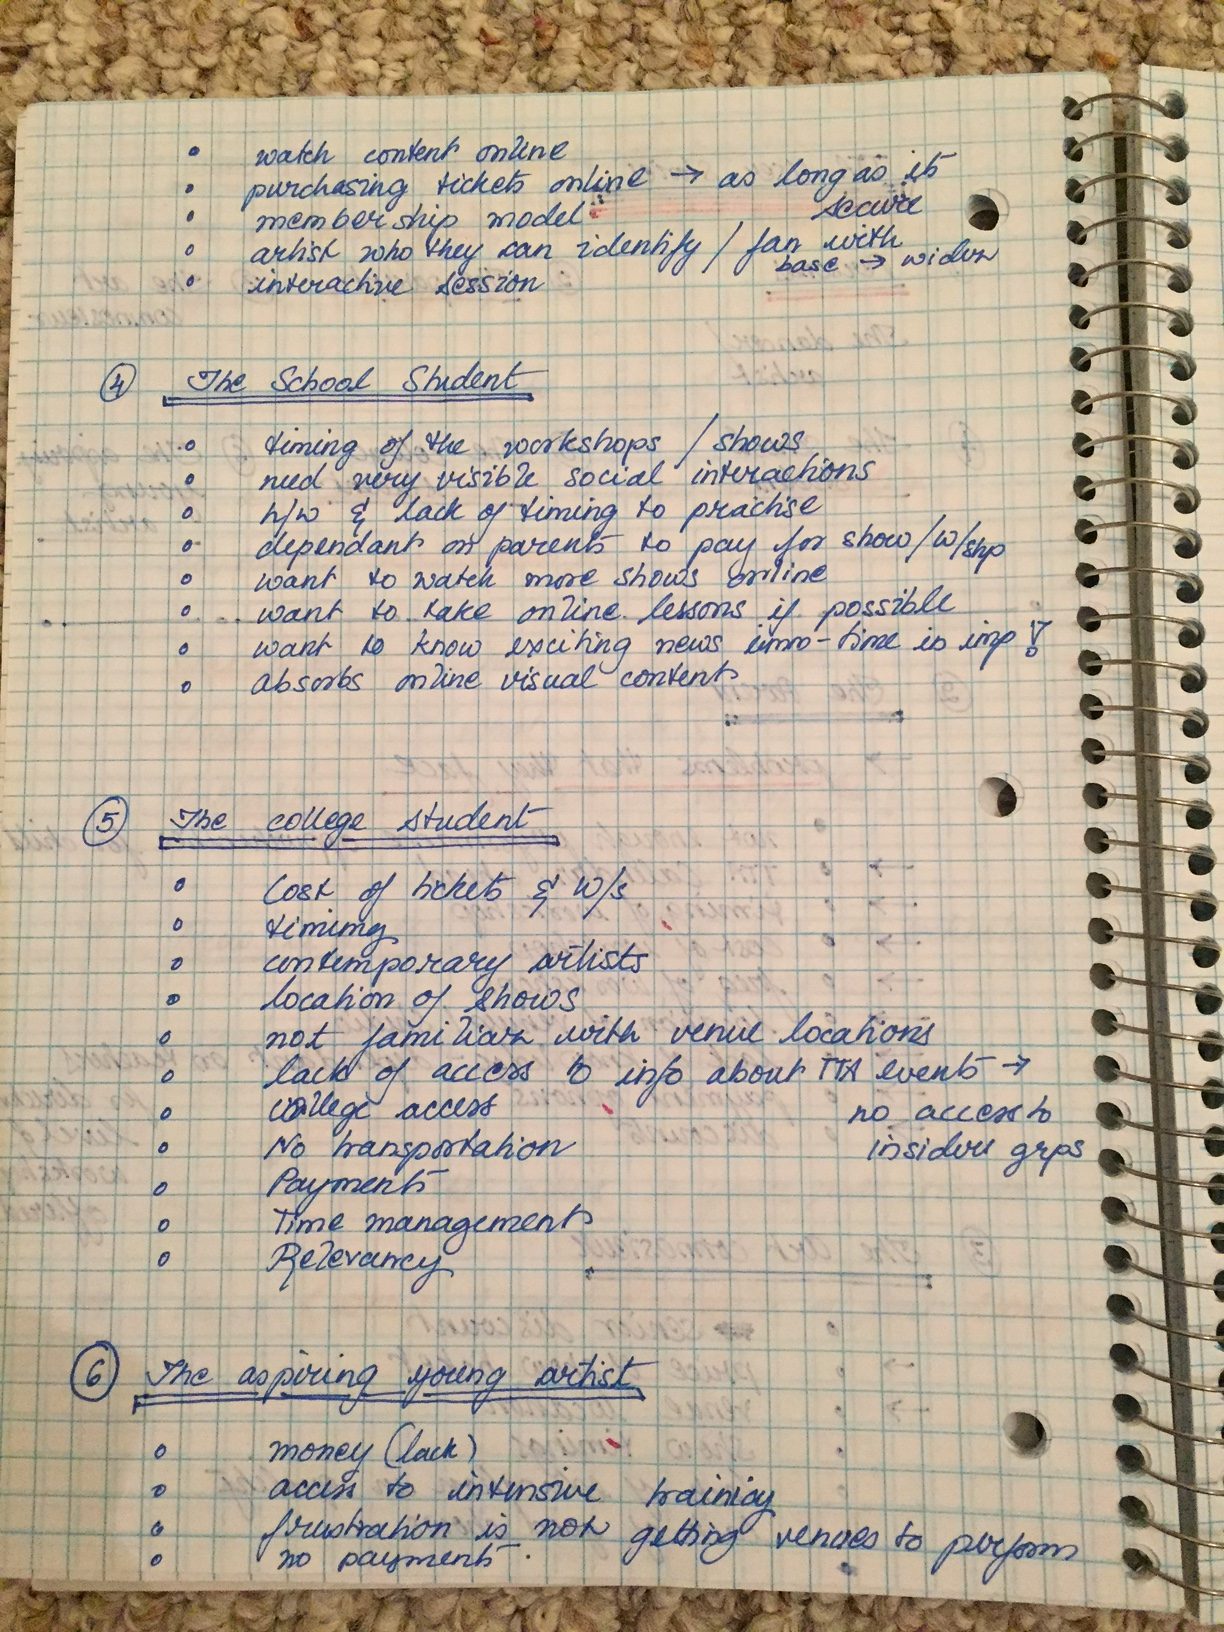 watch content online
purchasing tickets online → as long as its
secure
membership model
artist who they can identify / fan with
base → wider
interactive session
④ The School Student
timing of the workshops / shows
need very visible social interactions
h/w & lack of timing to practise
dependant on parents to pay for show/w/shp
want to watch more shows online
want to take online lessons if possible
want to know exciting news - time is imp!
absorbs online visual content
⑤ The college student
Cost of tickets & w/s
timimg
contemporary artists
location of shows
not familiar with venue locations
lack of access to info about TTA events →
no access to
insider grps
college access
No transportation
Payments
Time management
Relevancy
⑥ The aspiring young artist
money (lack)
access to intensive training
frustration is not getting venues to perform
no payments.